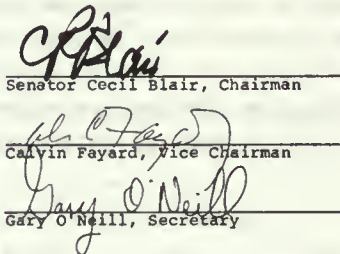 CR Blair
Senator Cecil Blair, Chairman
Calvin Fayard, Vice Chairman
Gary O'Neill
Gary O'Neill, Secretary